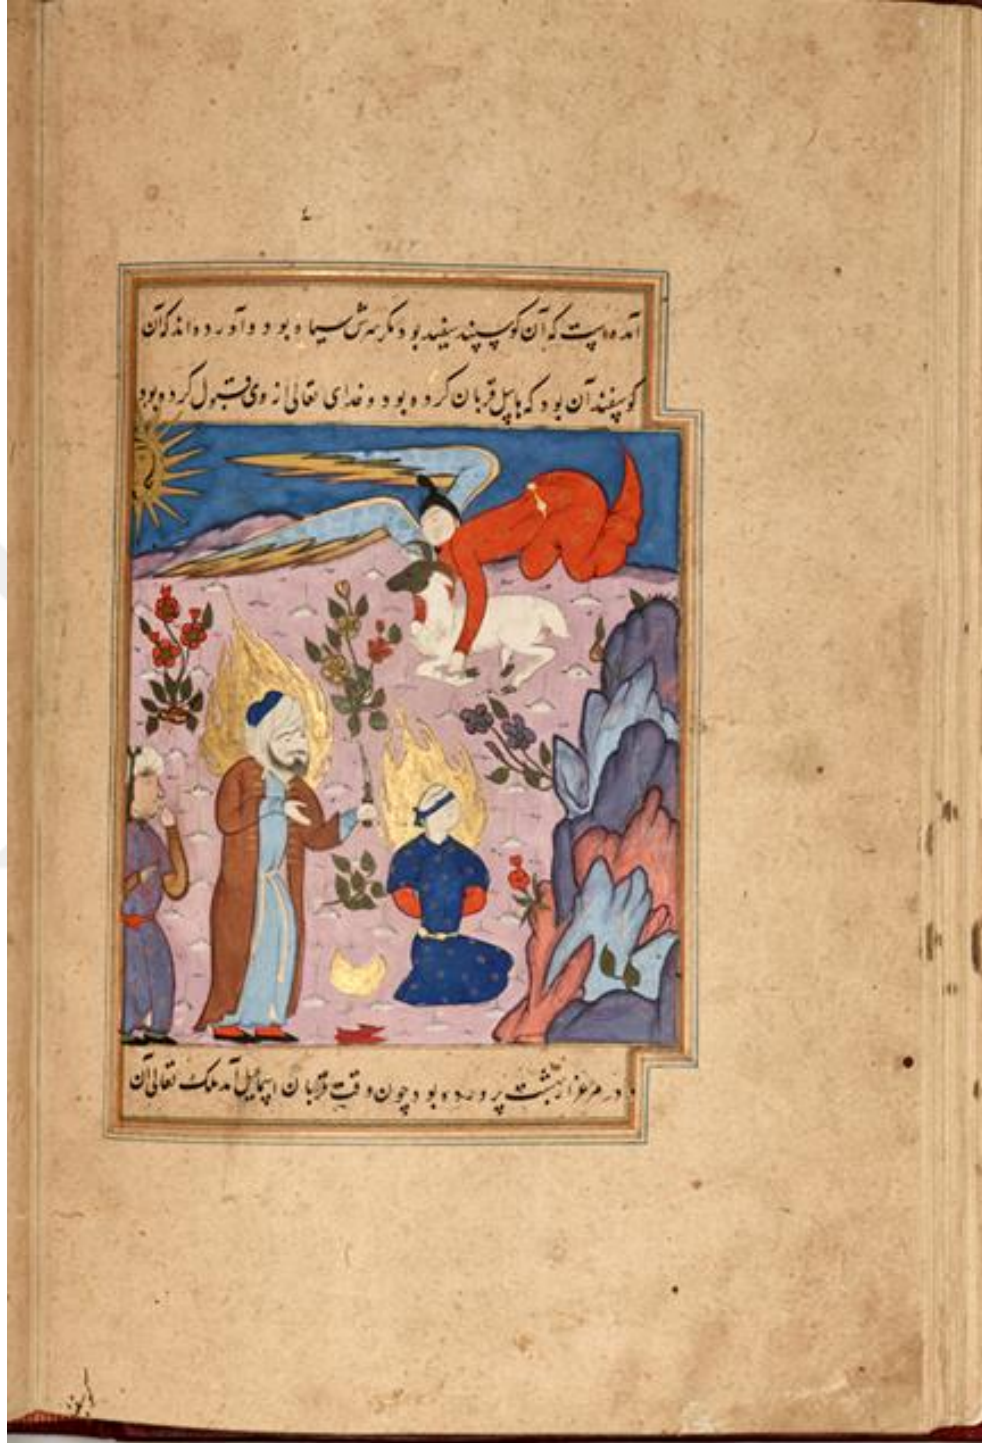 ٤
آمده است که آن کوسپند سفید بود مکر سرش سیاه بود و آورده اند که آن
کوسفند آن بود که هابیل قربان کرده بود و خدای تعالی از وی قبول کرده بود
در مرغزار بهشت پرورده بود چون وقت قربان اسماعیل آمد ملک تعالی آن